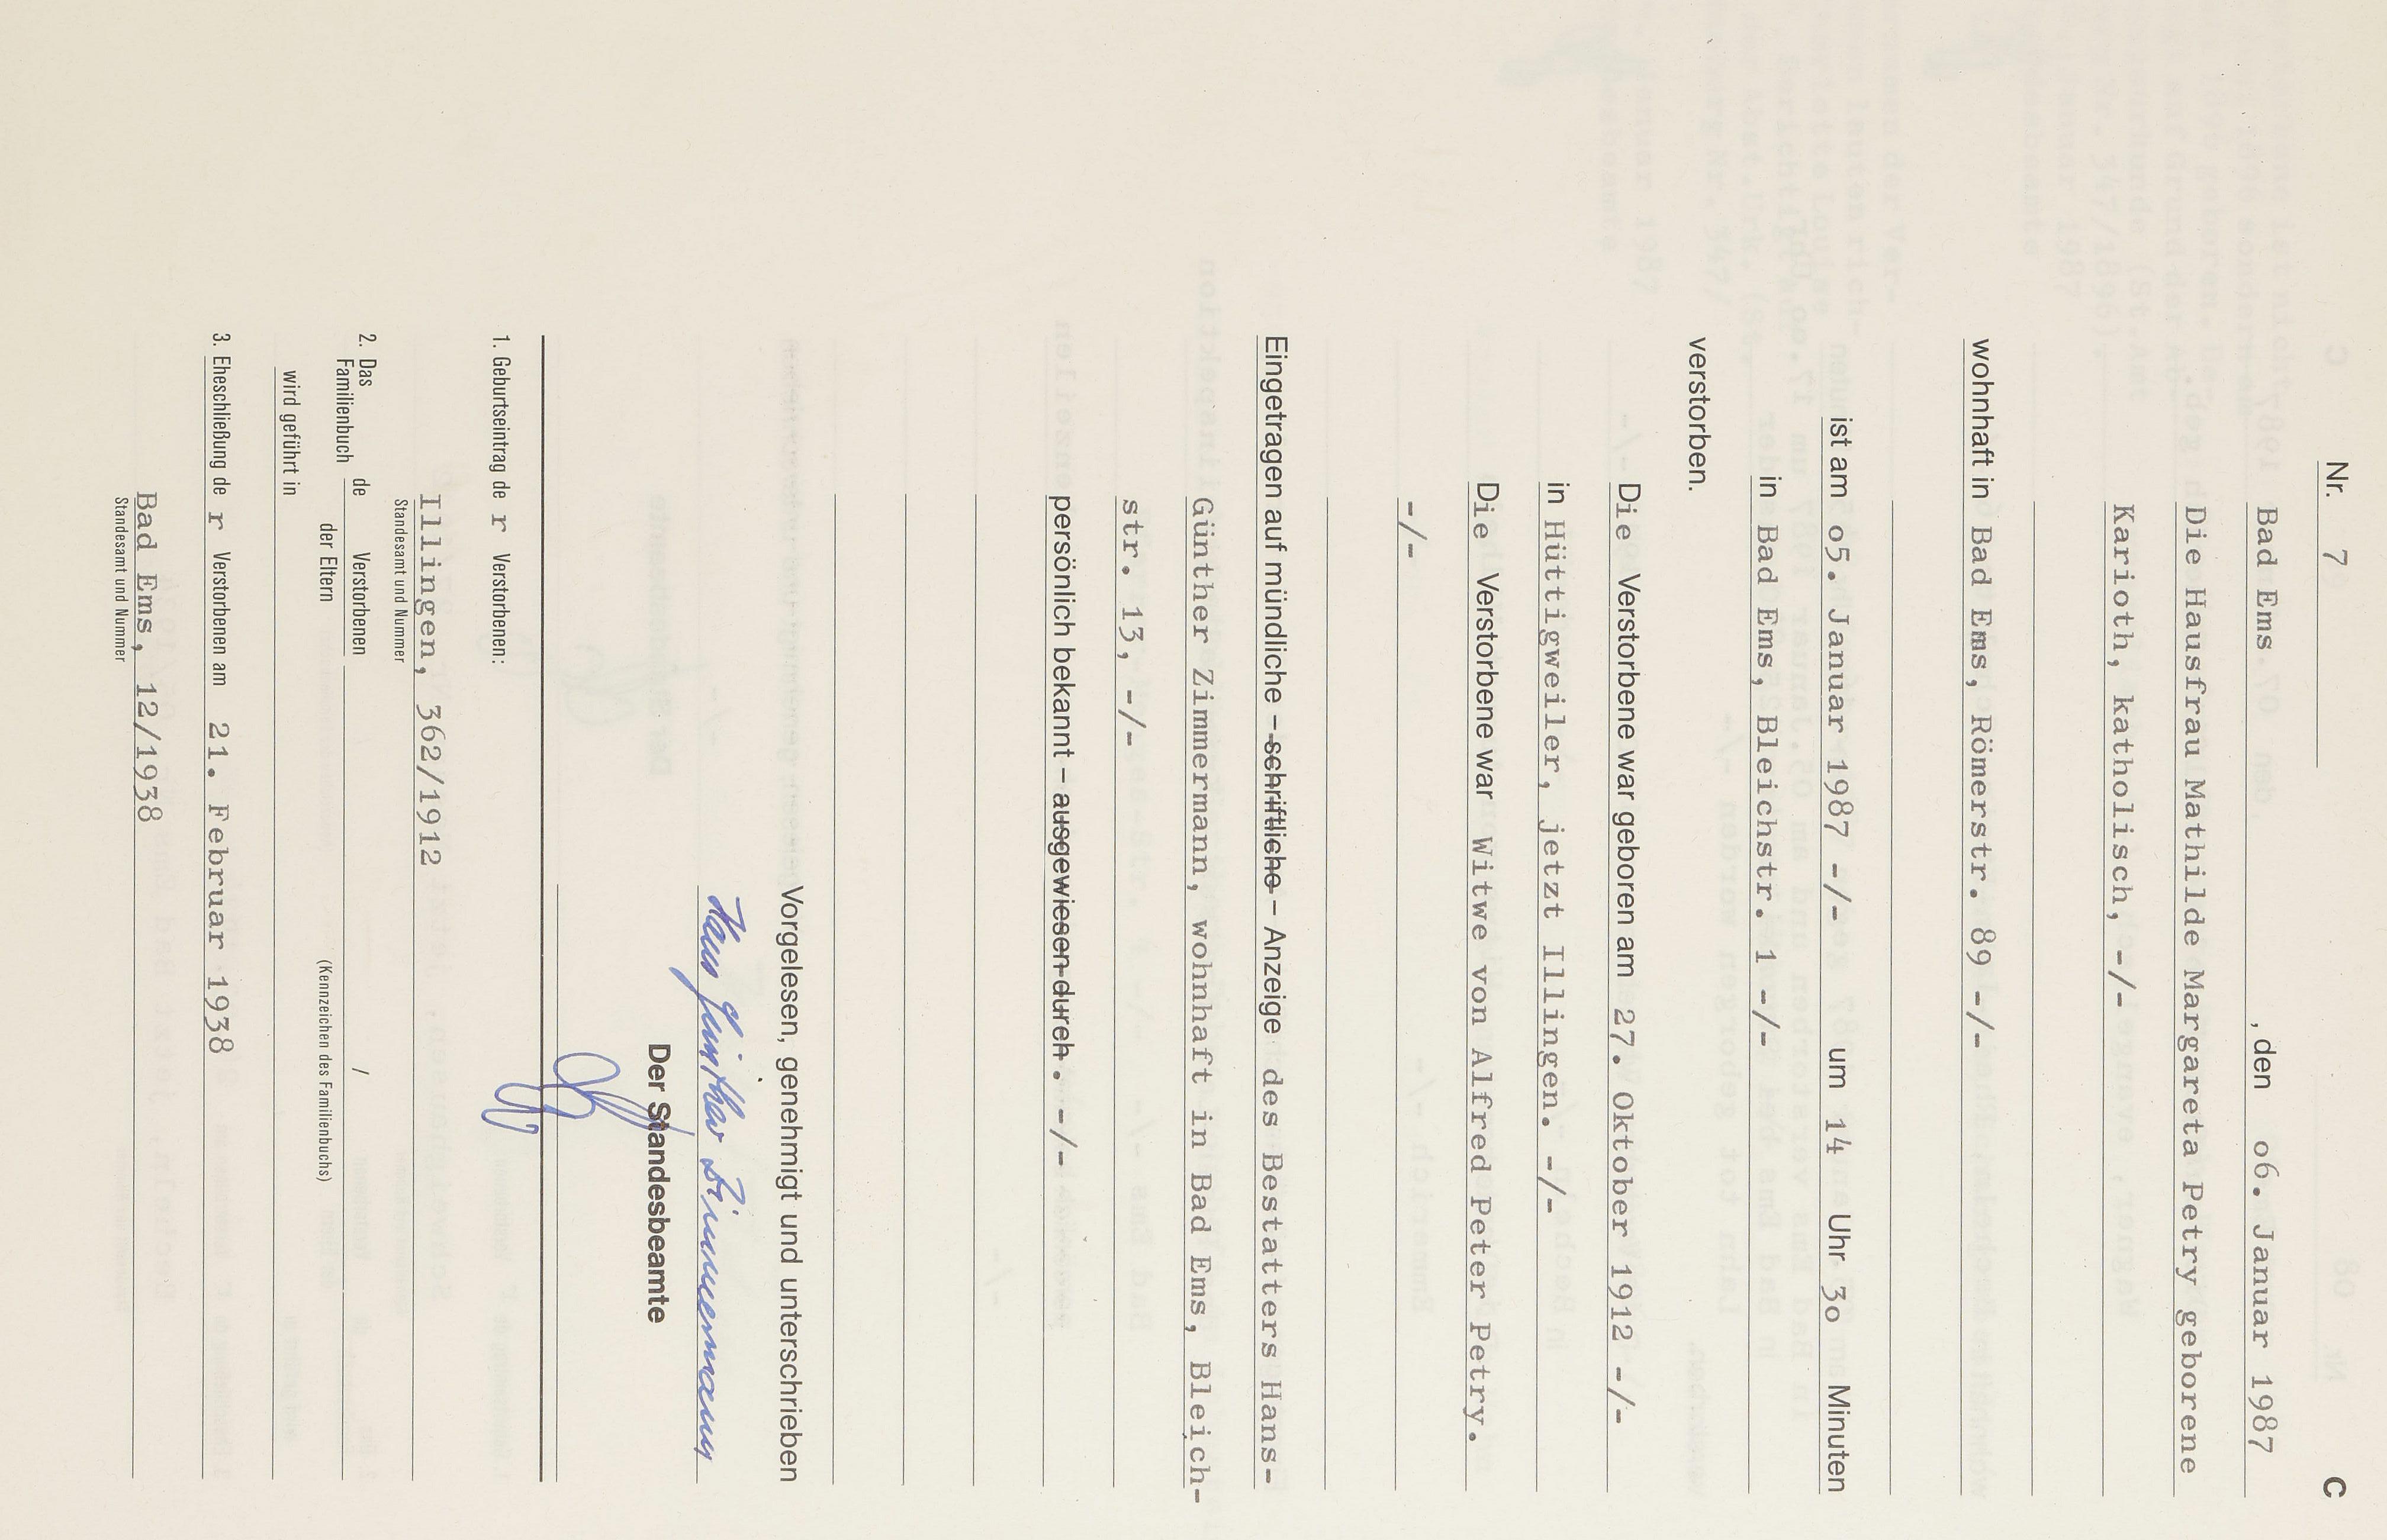 Nr. 7 C
Bad Ems , den o6. Januar 1987
Die Hausfrau Mathilde Margareta Petry geborene
Karioth, katholisch, -/-
wohnhaft in Bad Ems, Römerstr. 89 -/-
ist am o5. Januar 1987 -/- um 14 Uhr 3o Minuten
in Bad Ems, Bleichstr. 1 -/-
verstorben.
Die Verstorbene war geboren am 27. Oktober 1912 -/-
in Hüttigweiler, jetzt Illingen. -/-
Die Verstorbene war Witwe von Alfred Peter Petry.
-/-
Eingetragen auf mündliche – schriftliche – Anzeige des Bestatters Hans-
Günther Zimmermann, wohnhaft in Bad Ems, Bleich-
str. 13, -/-
persönlich bekannt – ausgewiesen durch . -/-
Vorgelesen, genehmigt und unterschrieben
Hans Günther Zimmermann
Der Standesbeamte
1. Geburtseintrag de r Verstorbenen:
Illingen, 362/1912
Standesamt und Nummer
2. Das Familienbuch de Verstorbenen /
der Eltern (Kennzeichen des Familienbuchs)
wird geführt in
3. Eheschließung de r Verstorbenen am 21. Februar 1938
Bad Ems, 12/1938
Standesamt und Nummer